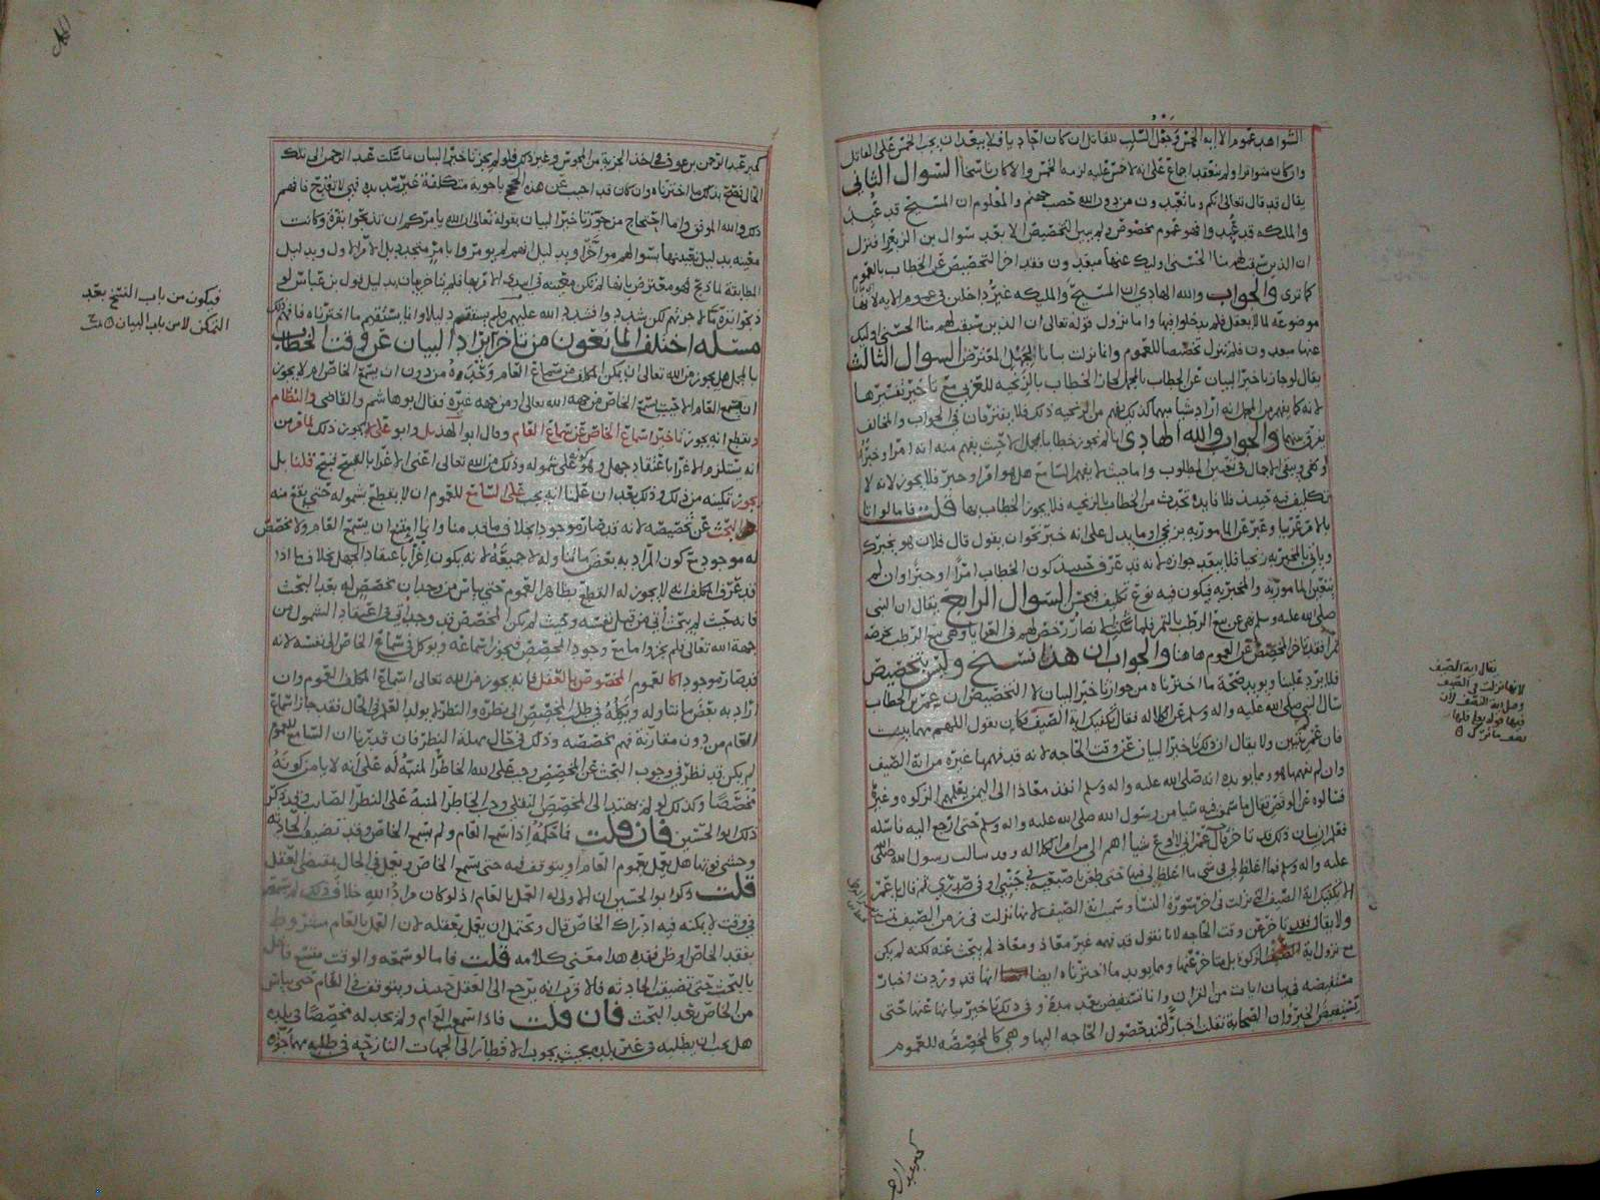 الشواهد عموم الآية الخمس وجعل السلب للقاتل ان كان احاديا فلا يبعد ان يجب الخمس على القاتل
وان كان متواترا ولم ينعقد اجماع على انه لا خمس عليه لزمه الخمس والا كان ناسخا السوال الثاني
يقال قد قال تعالى انكم وما تعبدون من دون الله حصب جهنم والمعلوم ان المسيح قد عبد
والملئكه قد عبدوا فهو عموم مخصوص ولم يبين التخصيص الا بعد سوال بن الزبعرا فنزل
ان الذين سبقت لهم منا الحسنى اوليك عنها مبعدون فقد اخر التخصيص عن الخطاب بالعموم
كما ترى والجواب والله الهادي ان المسيح والمليكه غير داخلين في عموم الايه لانها
موضوعه لما لا يعقل فلم يدخلوا فيها واما نزول قوله تعالى ان الذين سبقت لهم منا الحسنى اوليك
عنها مبعدون فلم تنزل تخصيصا للعموم وانما نزلت بيانا لجهل المعترض السوال الثالث
يقال لو جاز تاخير البيان عن الخطاب بالمجمل لجاز الخطاب بالزنجيه للعربي مع تاخير تفسيرها
لانه كما يفهم من المجمل انه اراد شيا مبهما كذلك يفهم من الزنجيه ذلك فلا يفترقان في الجواب والمخالف
يفرق بينهما والجواب والله الهادي انا لم نجوز خطابا بمجمل الا حيث يفهم منه انه امر او خبر
او نهي وبقي الاجمال في تعيين المطلوب واما حيث لا يفهم السامع هل هو امر او خبر فلا يجوز لانه لا
تكليف فيه حينئذ فلا فايده تحدث من الخطاب بالزنجيه فلا يجوز الخطاب بها قلت فاما لو اتا
بالامر عربيا وعبر عن المامور به بزنجي او ما يدل على انه خبر نحو ان يقول قال فلان او هو يخبرك
وياتي بالمخبر به زنجيا فلا يبعد جوازه لانه قد عرف حينئذ كون الخطاب امرا او خبرا وان لم
يتعين المامور به والمخبر به فيكون فيه نوع تكليف فيحسن السوال الرابع يقال ان النبي
صلى الله عليه وسلم نهى عن بيع الرطب بالتمر فلما شكت الانصار رخص لهم في العرايا وهي بيع الرطب بخرصه
تمرا فقد تاخر المخصص عن العموم هاهنا والجواب ان هذا نسخ وليس بتخصيص
فلا يرد علينا ويويد صحة ما اخترناه من جواز تاخير البيان لا التخصيص ان عمر بن الخطاب
سال النبي صلى الله عليه واله وسلم عن الكلاله فقال تكفيك اية الصيف فكان يقول اللهم مهما بينت
فان عمر لم يتبين ولا يقال ان ذلك تاخير البيان عن وقت الحاجه لانه قد فهمها غيره من اية الصيف
وان لم يفهمها هو ومما يويده انه صلى الله عليه واله وسلم انفذ معاذا الى اليمن يعلمهم الزكوه وغيرها
فسالوه عن الاوقص فقال ما سمعت فيه شيا من رسول الله صلى الله عليه واله وسلم حتى ارجع اليه فاسله
فعلم ان بيان ذلك قد تاخر قال عمر اني لا ادع شيا اهم الي من امر الكلاله وقد سالت رسول الله صلى الله
عليه واله وسلم فما اغلظ لي في شي ما اغلظ لي فيها حتى طعن باصبعه في جنبي او في صدري ثم قال يا عمر
الا تكفيك اية الصيف التي نزلت في اخر سورة النسا وسميت اية الصيف لانها نزلت في زمن الصيف
ولا يقال فقد تاخر عن وقت الحاجه لانا نقول قد فهمه غير معاذ ومعاذ لم يبحث عنه لكنه لم يكن
مع نزول اية الزكوه بل متاخر عنها ومما يويد ما اخترناه ايضا انها قد وردت اخبار
مستفيضه في بيان ايات من القران وانما تستفيض بعد مدة وفي ذلك تاخير بيانها عنها حتى
يستفيض الخبر وان الصحابة نقلت اخبارا عند حصول الحاجه اليها وهي كالمخصصه للعموم
يقال اية الصيف
لانها نزلت في الصيف
كخبر عبد الرحمن
كخبر عبد الرحمن بن عوف في اخذ الجزية من المجوس وغير ذلك فلو لم يجز تاخير البيان ما سكت عبد الرحمن الى تلك
الحال فصح بذلك ما اخترناه وان كان قد اجيب عن هذه الحجج باجوبة متكلفة غير سديده فهي لا تقدح فافهم
ذلك والله الموفق واما احتجاج من جوز تاخير البيان بقوله تعالى ان الله يامركم ان تذبحوا بقرة وكانت
معينه بدليل تقييدها بسوالهم مواخرا وبدليل انهم لم يومروا بامر متجدد بل الامر الاول وبدليل
المطابقة لما ذبح فهو معترض بانها لم تكن معينه في ابتداء الامر بها فلم يتاخر بيان بدليل قول بن عباس لو
ذبحوا بقرة ما لاجزتهم لكن شددوا فشدد الله عليهم فلم يستقم دليلا وانما يستقيم ما اخترناه فافهم ذلك
مسئله اختلف المانعون من تاخر ايراد البيان عن وقت الخطاب
بالمجمل هل يجوز من الله تعالى ان يمكن المكلف من سماع العام وحده من دون ان يسمع الخاص ام لا يجوز
ان يسمع العام الا حيث يسمع الخاص من جهه الله تعالى او من جهه غيره فقال ابو هاشم والقاضي والنظام
ونقطع انه يجوز تاخير اسماع الخاص عن سماع العام وقال ابو الهذيل وابو علي لا يجوز ذلك لما مر من
انه يستلزم الاغرا باعتقاد جهل وهو على شموله وذلك من الله تعالى اعني الاغرا بالقبيح قبيح قلنا بل
يجوز تمكينه من ذلك وذلك بعد ان علمنا انه يجب على السامع للعموم ان لا يقطع بشموله حتى يقع منه
البحث عن تخصيصه لانه قد صار موجودا بخلاف ما قدمنا وايا امتنع ان يسمع العام ولا مخصص
له موجود مع كون المراد به بعض ما تناوله لا جميعه لانه يكون اغرا باعتقاد الجهل بخلاف ما اذا
قد عرف المكلف انه لا يجوز له القطع بظاهر العموم حتى يياس من وجدان مخصص له بعد البحث
فانه حيث لم يبحث اتي من قبل نفسه وحيث لم يكن المخصص قد وجد اتي في اعتقاد الشمول من
جهة الله تعالى فلم يجز واما مع وجود المخصص فيجوز اسماعه ويوكل في سماع الخاص الى نفسه لانه
قد صار موجودا كالعموم المخصوص بالعقل فانه يجوز من الله تعالى اسماع المكلف العموم وان
اراد به بعض ما تناوله ويكله في طلب المخصص الى نظره والنظر لم يولد العلم في الحال فقد جاز اسماع
العام من دون مقارنة فهم مخصصه وذلك في حال مهلة النظر فان قدرنا ان السامع للعموم
لم يكن قد نظر في وجوب البحث عن المخصص وجب على الله الخاطر المنبه له على انه لا يامن كونه
مخصصا وكذلك لو لم يهتد الى المخصص النقلي وجب الخاطر المنبه على النظر الصايب وقد ذكر
ذلك ابو الحسين فان قلت فما حكمه اذا سمع العام ولم يسمع الخاص وقد تضيق الحادثه
وخشي فوتها هل يعمل بعموم العام او يتوقف فيه حتى يسمع الخاص ويعمل في الحال بمقتضى العقل
قلت ذكر ابو الحسين ان الاولى له العمل بالعام اذ لو كان مراد الله خلاف ذلك لم يسمعه
في وقت لا يمكنه فيه ادراك الخاص قال ويحتمل ان يعمل بعقله لان العمل بالعام مشروط
بفقد الخاص او ظن فقده هذا معنى كلامه قلت فاما لو سمعه والوقت متسع فاهمل
بالبحث حتى تضيق الحادثه فالاقرب انه يرجع الى العقل حينئذ ويتوقف في العام حتى يياس
من الخاص بعد البحث فان قلت فاذا سمع العام ولم يجد له مخصصا في بلده
هل يجب ان يطلبه في غير بلده بحيث يجوب الاقطار الى الجهات النازحه في طلبه مهما جوزه
فيكون من باب النسخ بعد
التمكن لا من باب البيان